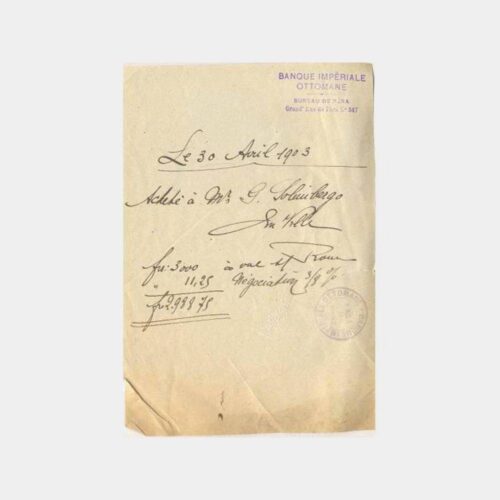 BANQUE IMPÉRIALE
OTTOMANE
BUREAU DE PÉRA
Grand' Rue de Péra Nº 347
Le 30 Avril 1903
Acheté à Mr G.
En Ville
frs 3000 à vue st Rome
" 11,25 Négociation 3/8 %
frs 2988 75
OTTOMANE